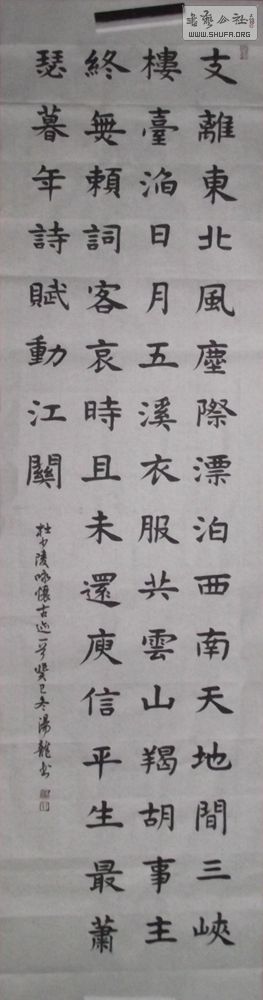 支離東北風塵際漂泊西南天地間三峽
樓臺淹日月五溪衣服共雲山羯胡事主
終無賴詞客哀時且未還庾信平生最蕭
瑟暮年詩賦動江關
杜少陵咏懷古迹一首癸巳冬湯龍書
書藝公社
WWW.SHUFA.ORG